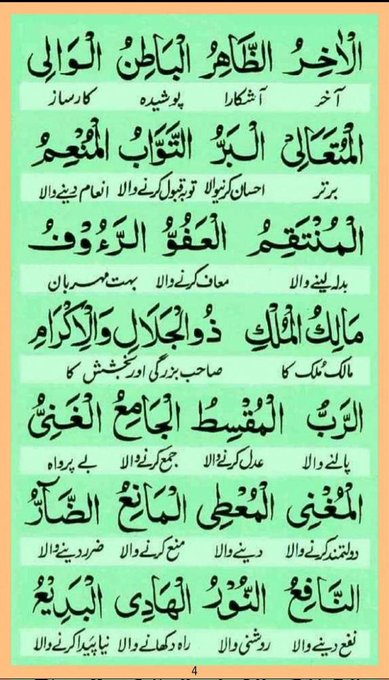 الْاٰخِرُ الظَّاهِرُ الْبَاطِنُ الْوَالِی
آخر آشکارا پوشیدہ کارساز
الْمُتَعَالِیْ الْبَرُّ التَّوَّابُ الْمُنْعِمُ
برتر احسان کرنیوالا توبہ قبول کرنے والا انعام دینے والا
الْمُنْتَقِمُ الْعَفُوُّ الرَّءُوْفُ
بدلہ لینے والا معاف کرنے والا بہت مہربان
مَالِكُ الْمُلْكِ ذُوالْجَلَالِ وَالْاِكْرَامِ
مالک مُلک کا صاحب بزرگی اور بخشش کا
الرَّبُّ الْمُقْسِطُ الْجَامِعُ الْغَنِیُّ
پالنے والا عدل کرنے والا جمع کرنے والا بے پرواہ
الْمُغْنِی الْمُعْطِی الْمَانِعُ الضَّآرُّ
دولتمند کرنے والا دینے والا منع کرنے والا ضرر دینے والا
النَّافِعُ النُّوْرُ الْهَادِی الْبَدِیْعُ
نفع دینے والا روشنی والا راہ دکھانے والا نیا پیدا کرنے والا
4